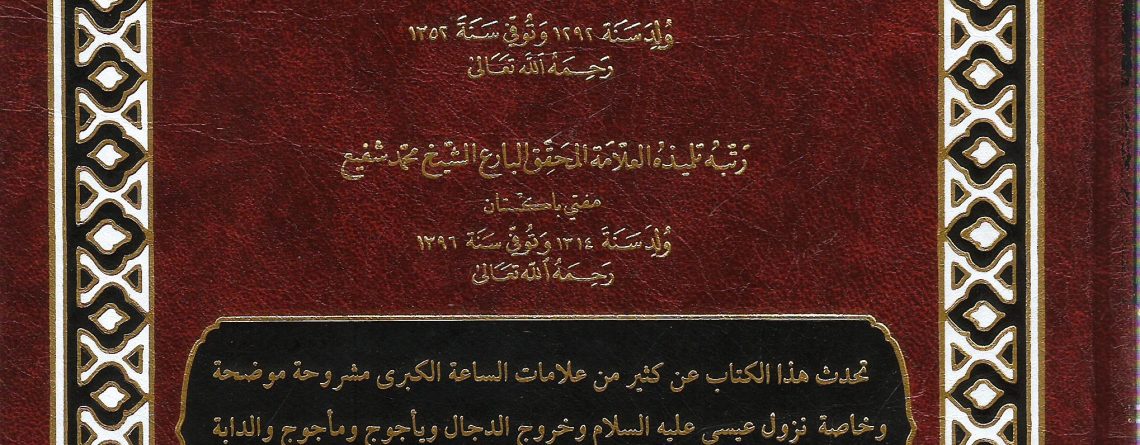 وُلِدَ سَنَة ١٢٩٢ وَتُوُفِّيَ سَنَةَ ١٣٥٢
رَحِمَهُ اللَّه تَعَالىٰ
رَتَّبَهُ تلميذهُ العلّامة المحَقِّق البارع الشَّيْخ محمّد شفيع
مفتي باكستان
وُلِدَ سَنَةَ ١٣١٤ وَتُوُفِّيَ سَنَة ١٣٩٦
رَحِمَهُ اللَّه تَعَالىٰ
تحدث هذا الكتاب عن كثير من علامات الساعة الكبرى مشروحة موضحة
وخاصة نزول عيسى عليه السلام وخروج الدجال ويأجوج ومأجوج والدابة